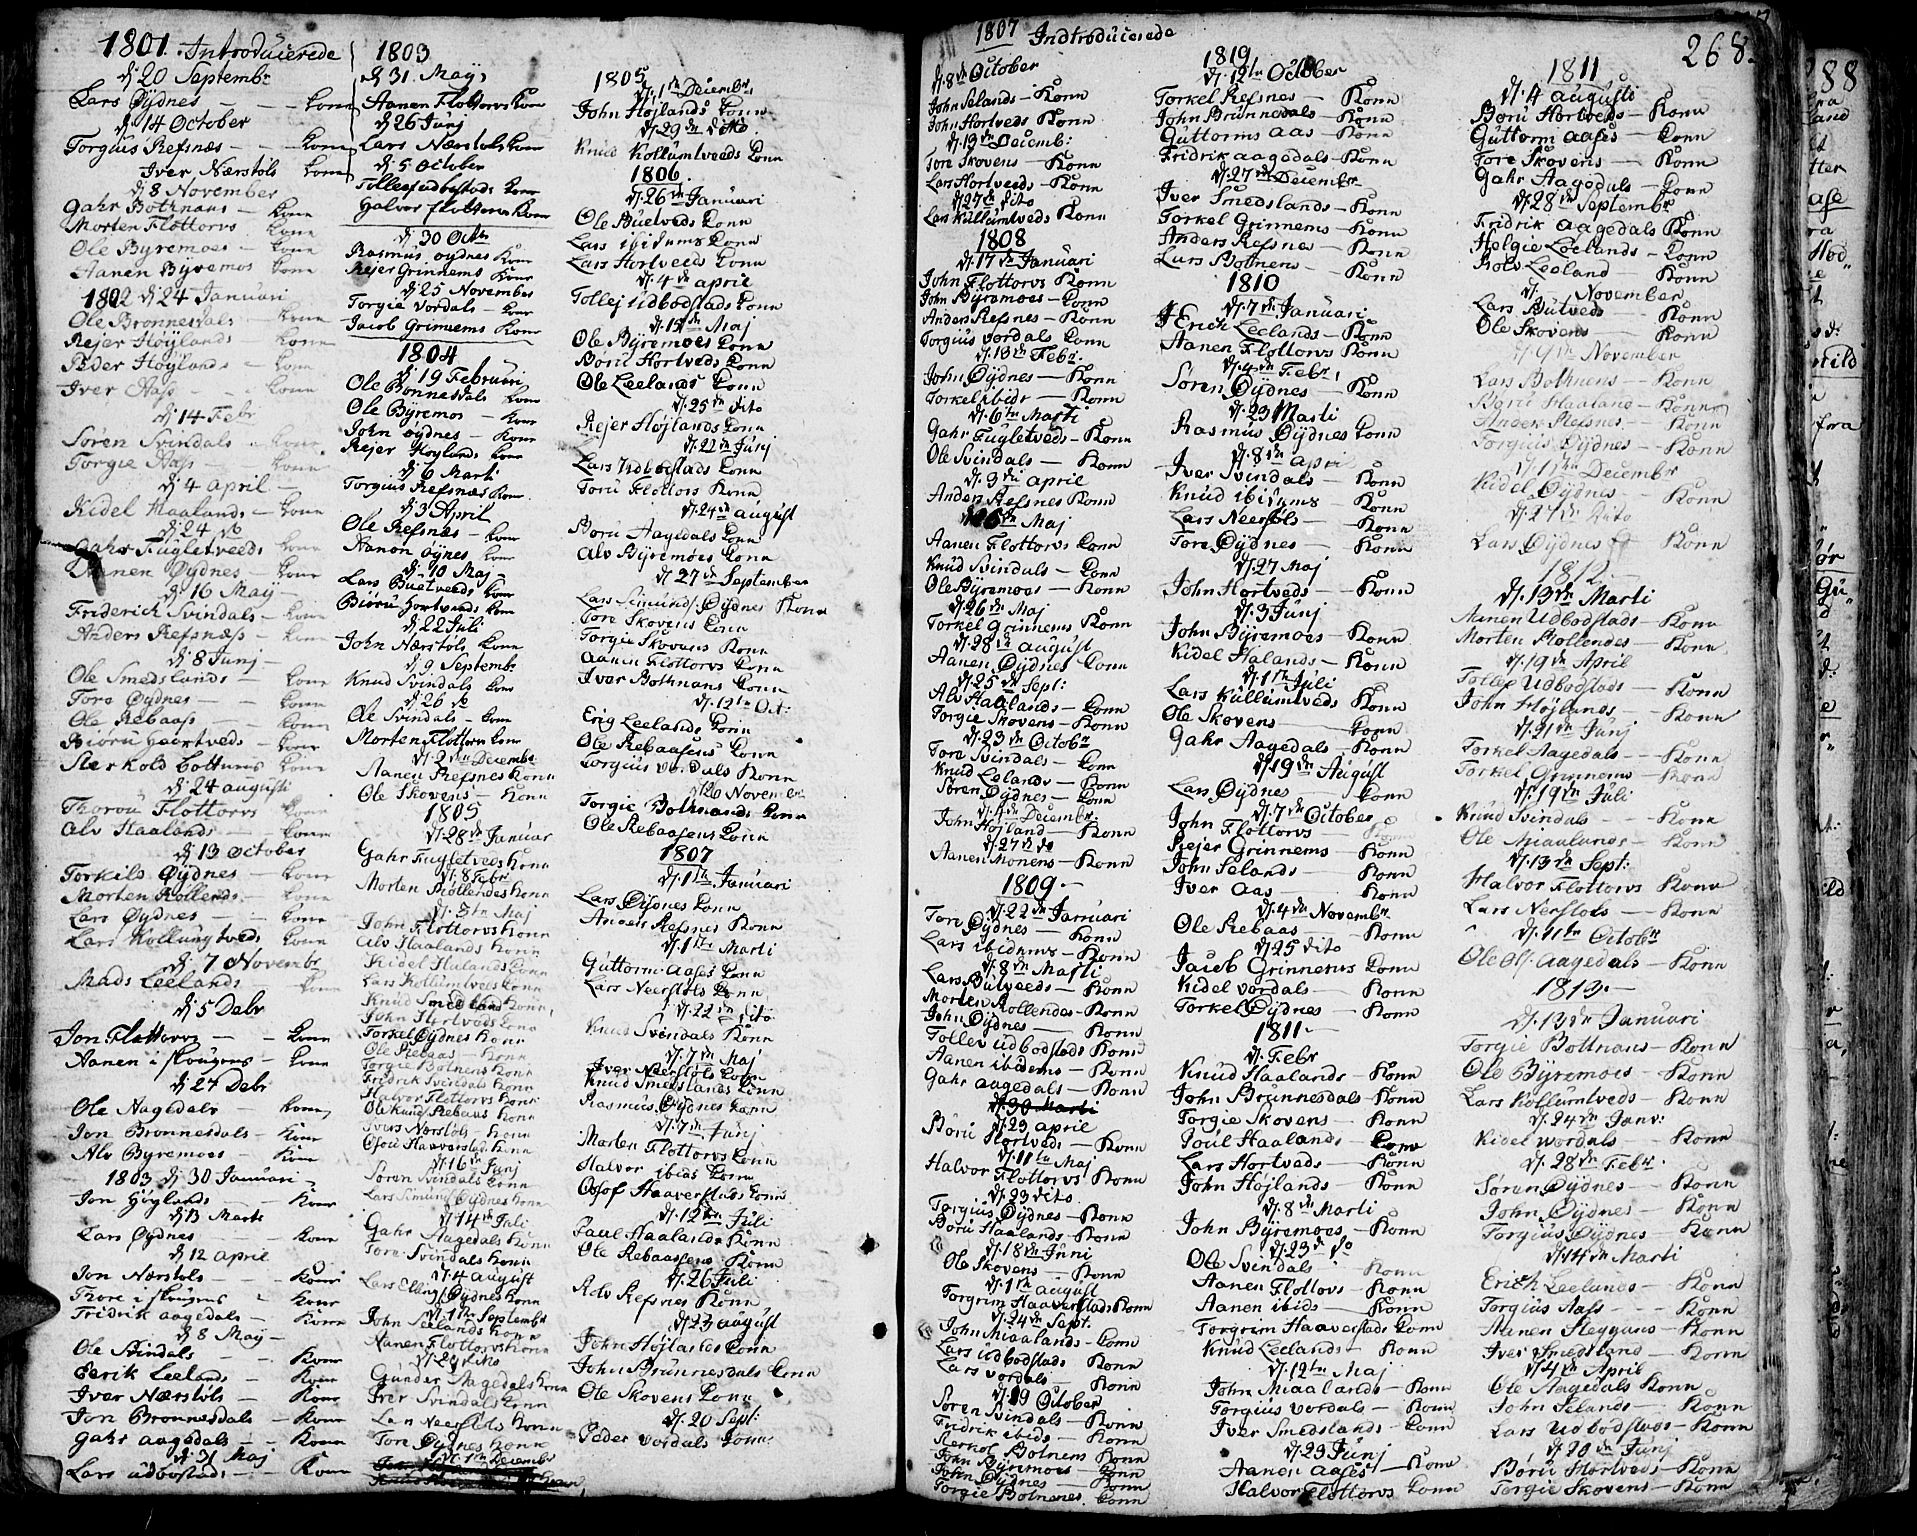 1801. Introducerede
dj 20 Septembr
Lars Øÿdnes - - - kone
dj 14 October
Torgius Refsnæs - - kone
Iver Nærstöls kone
dj 8 November
Gahr Bothnans - kone
Morten Flottorvs kone
Ole Byremoes - kone
Aanen Byremos kone
1802 dj 24 Januari
Ole Bronnesdals - kone
Rejer Høÿlands - kone
Peder Høÿlands - kone
Iver Aass - - kone
dj 14 Febr
Søren Svindals - kone
Torgie Aass - kone
dj 4 April -
Kidel Haalands - kone
dj 24 do
Gahr Fugletveeds kone
Aanen Øÿdnes - kone
dj 16 Maÿ -
Friderich Svindals - kone
Anders Refsnæss - kone
dj 8 Junj -
Ole Smedslands - kone
Tore Øÿdnes - kone
Ole Rebaass - - kone
Biörü Hortveds - kone
Sterkold Bottnens kone
dj 24 augusti
Thorou Flottorvs kone
Alv Haalands - - kone
dj 13 October
Torkils Øÿdnes - kone
Morten Rollends - kone
Lars Øÿdnes - - kone
Lars Kollungtveds kone
dj 7 Novembr
Mads Leelands - kone
dj 5 Debr
Jon Flottorvs - - kone
Aanen i skougens - kone
dj 27 Debr
Ole Aagedals - kone
Jon Bronnesdals - kone
Alv Byremoes - kone
1803 dj 30 Januari
Jon Høglands - kone
dj 13 Marti
Lars Øÿdnes - kone
dj 12 april
Jon Nærstöls - - kone
Thore i skougens - kone
Fridrik aagedals - kone
dj 8 Maÿ -
Ole Svindals - - kone
Eerik Leelands - kone
Iver Nærstöls - kone
Jon Bronnesdals - kone
Gahr aagedals - kone
dj 31 Maj
Lars udbostads - - kone
1803
dj 31. Maÿs
Aanen Flottorvs kone
dj 26 Junj
Lars Nærstöls kone
dj 5 October
Tollefs udbostads kone
Halvor flottorvs kone
dj 30 Octbr
Rasmus oydnes kone
Rejer Grinnems kone
dj 25 November
Torgie Vordals - kone
Jacob Grinnems kone
1804
dj 19 Februari
Ole Bonnesdals kone
Ole Byremos - kone
John øydnes - kone
Rejer Hoylands kone
dj 6 Marti
Torgius Refsnæs kone
dj 3 April
Ole Refsnæs - kone
Aanon öynes kone
dj 10 Maj
Lars Buetveeds kone
Biörü Hortveds kone
dj 22 Juli
John Nærstöls kone
dj 9 Septembr
Knud Svindals kone
dj 26 do
Ole Svindals - kone
Morten Flottorvs kone
dj 2den Decembr
Aanen Refsnes kone
Ole Skovens - Konn
1805
dj 28de Januar
Gahr Fugletveds Konn
dj. 8 Febr
Morten Rollendes Konn
dj. 5te Maj
John Flottorvs Konn
Alv Haalands Konn
Kidel Hulands Konn
Lars Kollumtveds Konn
Knud Smedsland Konn
John Hortveds Konn
Torkel Øydnes Konn
Ole Rebaas - Konn
Torgie Bolnens Konn
Fredrik Svindals Konn
Halvor Flottorvs Konn
Ole Knud Rebaas Konn
Ivers Nærstöls - Konn
Osou Haaverstad Konn
dj 16de Junj
Søren Svindals Konn
Lars Simund Øydnes Konn
dj 14de Juli
Gahr Aagedals Konn
Tore Svindals Konn
dj. 4 august
Lars Ellings Øydnes Konn
dj. 1ste September
John Selands Konn
Aanen Flottorvs Konn
dj. 20 dito
Gunder Aagedals Konn
Iver Svindals Konn
Lars Neerstöls Konn
Tore Øydnes Konn
dj. 1ste Decembr
1805
dj. 1ste Decembr
John Højlands Konn
dj. 29de dito
Knud Kollumtveeds Konn
1806.
dj. 26de Januari
Ole Buetveds Konn
Lars ibidems Konn
Lars Hortveds Konn
dj. 4de aprie
Tollej Udbodstads Konn
dj. 15de Maj
Ole Byremoes Konn
Börü Hortveds Konn
Ole Leelands Konn
dj. 25de dito
Rejer Højlands Konn
dj. 22de Junj
Lars Udbostads Konn
Torü Flottors Konn
dj. 24de august
Börü Aagedals Konn
Alv Byremoes Konn
dj 27de September
Lars Simund Øydnes Konn
Tore Skovens Konn
Torgie Skovens Konn
Aanen Flottorvs Konn
Ivar Bothnans Konn
dj. 12te Oct:
Erig Leelands Konn
Ole Rebaasens Konn
Torgius Vordals Konn
dj 26 Novembr
Torgie Bothnands Konn
Ole Rebaasens Konn
1807
dj. 1ste Januari
Lars Øydnes Konn
Anders Refsnes Konn
dj 1ste Marti
Guttorm Aases Konn
Lars Neerstöls Konn
dj. 22de dito
Knud Svindals Konn
dj. 7de Maj
Iver Neerstöls Konn
Knud Smedslands Konn
Rasmus Øydnes Konn
dj. 7de Junj
Marten Flottorvs Konn
Halvor ibids Konn
Osof Haaverstads Konn
dj. 12te Juli
Paul Haalands Konn
Ole Rebaassens Konn
dj. 26 Juli
Adv Refsnes Konn
dj 23 august
John Højlands Konn
John Brunnesdals Konn
Ole Skovens Konn
dj. 20 Sept:
Peder Vordals Konn
1807 Indtroducerede
268.
dj. 8de October
John Selands - Konn
John Hortveds Konn
dj. 13de Decemb:
Tore Skovens - Konn
Lars Hortveeds - Konn
dj 27de dito
Lars Kullumtveds Konn
1808
dj. 17de Januari
John Flottorvs Konn
John Byremoes - Konn
Anders Refsnes - Konn
Torgius Vordals Konn
dj. 13de Febr.
John Øydnes - Konn
Torkel ibidr - Konn
dj. 6te Marti
Gahr Fugletveds - Konn
Ole Svindals - Konn
dj. 3de april
Anders Refsnes Konn
dj. 26de Maj
Aanen Flottorvs Konn
Knud Svindals - Konn
Ole Byremoes - Konn
dj. 26de Maj
Torkel Grinnems Konn
dj. 28de august
Aanen Øydnes Konn
dj. 25de Sept:
Alv Haalands - Konn
Torgie Skovens - Konn
dj. 23de Octobr
Tore Svindals - Konn
Knud Lelands - Konn
Søren Øydnes - Konn
dj. 4de Decembr
John Højland - Konn
dj. 27de do
Aanen Monens - Konn
1809 -
dj. 22de Januari
Tore Øydnes - Konn
Lars ibidems - Konn
dj. 8de Marti
Lars Butveeds - Konn
Morten Rollendes - Konn
John Øydnes - Konn
Tollev udbodstads Konn
Aanen ibidems - Konn
Gahr aagedals - Konn
dj. 30 Marti
dj. 23 april
Börü Hortveds - Konn
dj. 11te Maj
Halvor Flottorvs Konn
dj. 23 dito
Torgius Øydnes - Konn
Börü Haalands - Konn
dj. 18de Juni
Ole Skovens - Konn
dj. 1ste august
Torgrim Haaverstads Konn
dj. 24de Sept.
John Miaalands - Konn
Lars udbodstads Konn
Lars Vordals - Konn
dj. 19 October
Søren Svindals - Konn
Fredrik ibids - Konn
Sterkol Bolnens Konn
John Byremoes - Konn
John Øydnes - Konn
Torgie Bolnenes. Konn
1819
dj. 12te October
Torkel Refsnes - Konn
John Brunnesdals - Konn
Guttorms Aas - Konn
Fridrik aagedals - Konn
dj. 27de Decembr
Iver Smedslands - Konn
Torkel Grinnems - Konn
Anders Refsnes - Konn
Lars Bolnens - Konn
1810
dj. 7de Januari
Erich Leelands - Konn
Aanen Flottorvs Konn
dj. 4de Febr.
Søren Øydnes - Konn
dj. 23 Marti
Rasmus Øydnes Konn
dj. 8de April
Iver Svindals - Konn
Knud ibidems - Konn
Lars Neerstöls - Konn
Tore Øydnes - Konn
dj. 27 Maj
John Hortveds - Konn
dj. 3 Junj
John Byremoes - Konn
Kidel Halands - Konn
dj. 1ste Juli
Lars Kullumtveds Konn
Ole Skovens - Konn
Gahr Aagedals - Konn
dj 19de August
Lars Øydnes - Konn
dj. 7de October
John Flottorvs - Konn
Rejer Grinnems - Konn
John Selands - Konn
Iver Aas - Konn
dj. 4de Novembr
Ole Rebaas - Konn
dj 25 dito
Jacob Grinnems Konn
Kidel Vordals - Konn
Torkel Øydnes - Konn
1811 -
dj. Febr
Knud Haalands - Konn
John Brunnesdals Konn
Torgie Skovens - Konn
Poul Haalands - Konn
Lars Hortveds - Konn
John Højlands - Konn
dj. 8de Marti
John Byremoes - Konn
dj. 23de do
Ole Svindals - Konn
Aanen Flottorvs - Konn
Aanen ibids - Konn
Torgrim Haaverstads Konn
Knud Leelands - Konn
dj. 12te Maj
John Miaalands - Konn
Torgius Vordals - Konn
Iver Smedslands - Konn
dj. 23 Junj
Aanen Aases - Konn
Halvor Flottorvs Konn
1811
dj. 4 augusti
Börü Hortveds - Konn
Guttorm Aases - Konn
Tore Skovens - Konn
Gahr Aagedals - Konn
dj 28de Septembr
Fridrik Aagedals Konn
Helgie Leelands - Konn
Rolv Leeland - Konn
dj. November
Lars Butveds - Konn
Ole Skovens Konn
dj 9de November
Lars Bothnens - Konn
Börü Haaland - Konn
Anders Refsnes - Konn
Torgius Øydnes - Konn
dj 1ste Decembr
Kidel Øydnes - Konn
dj. 27de dito
Lars Øydnes Konn
1812
dj. 13de Marti
Aanen Udbodstads - Konn
Morten Rollendes - Konn
dj. 19de April
Tollef Udbodstads - Konn
John Højlands - Konn
dj. 21de Junj
Torkel Aagedals - Konn
Torkel Grinnems - Konn
dj. 19de Juli
Knud Svindals - Konn
Ole Miaalands - Konn
dj. 13de Sept:
Halvor Flottorvs Konn
Lars Nerstols - Konn
dj. 11te Octobr
Ole Ols. Aagedals - Konn
1813. -
dj. 13de Januari
Torgie Bottnans - Konn
Ole Byremoes - Konn
Lars Kollumtveds - Konn
dj. 24de Janv:
Kidel Wordals - Konn
dj. 28de Febr.
Søren Øydnes - Konn
John Øydnes - Konn
Torgius Øydnes - Konn
dj. 14de Marti
Erich Leelands - Konn
Torgius Aass - Konn
Aanen Steggans - Konn
Iver Smedsland - Konn
dj 4de April
Ole Aagedals Konn
John Selands - Konn
Lars Udbodstads - Konn
dj 20de Junj
Börü Hortveds - Konn
Torgie Skovens - Konn
88